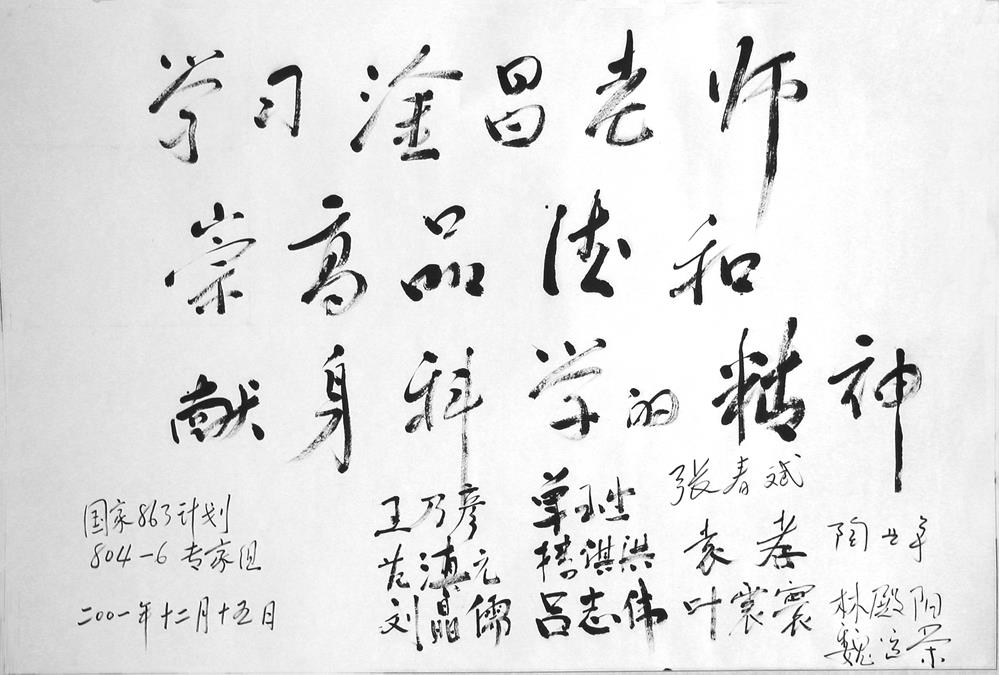 学习淦昌老师
崇高品德和
献身科学的精神
国家863计划
804-6专家组
二00一年十二月十五日
王乃彦
范滇元
刘晶儒
单玉生
楼祺洪
吕志伟
张春斌
袁孝
叶震寰
林殿阳